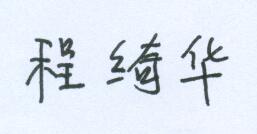 程绮华